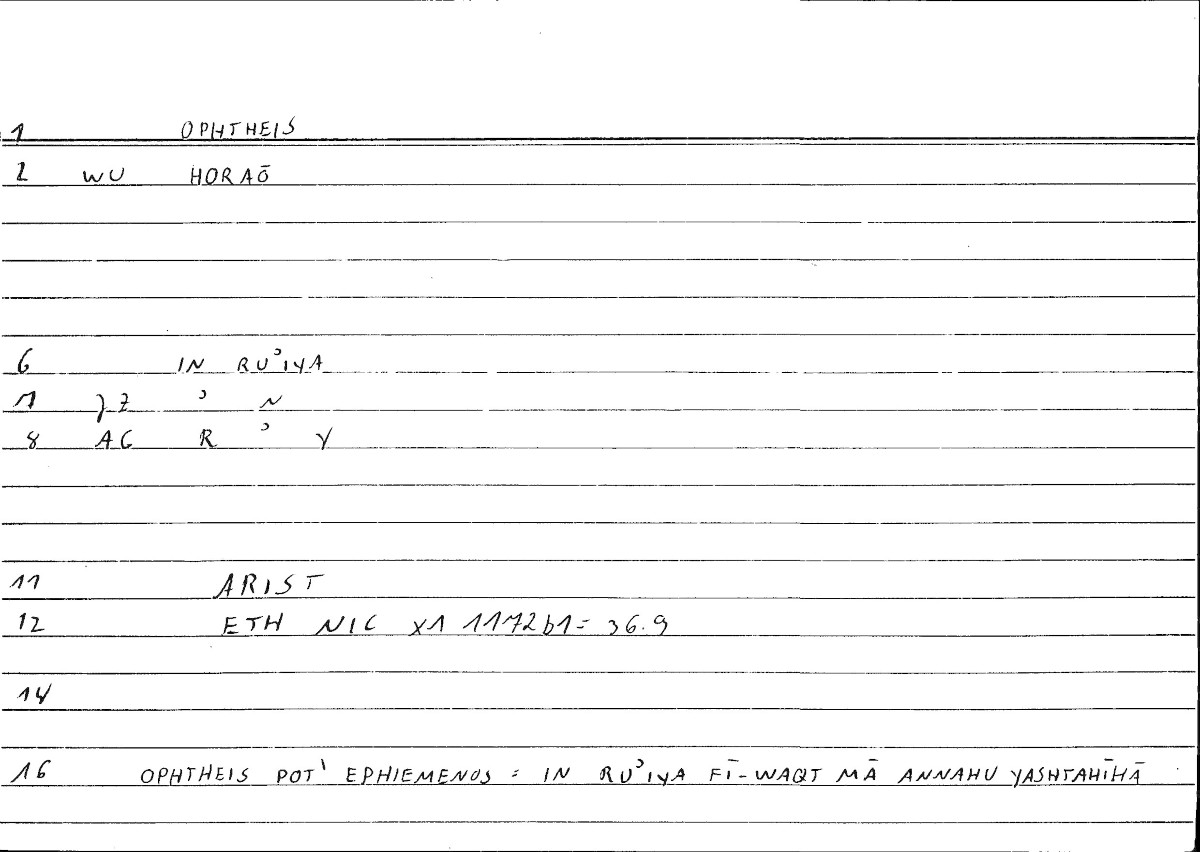 1 OPHTHEIS
2 WU HORAŌ
6 IN RUʾIYA
7 ʾ N
8 AG R ʾ Y
11 ARIST
12 ETH NIC X1 1172b1 = 36.9
14
16 OPHTHEIS POT' EPHIEMENOS = IN RUʾIYA FĪ-WAQT MĀ ANNAHU YASHTAHĪHĀ